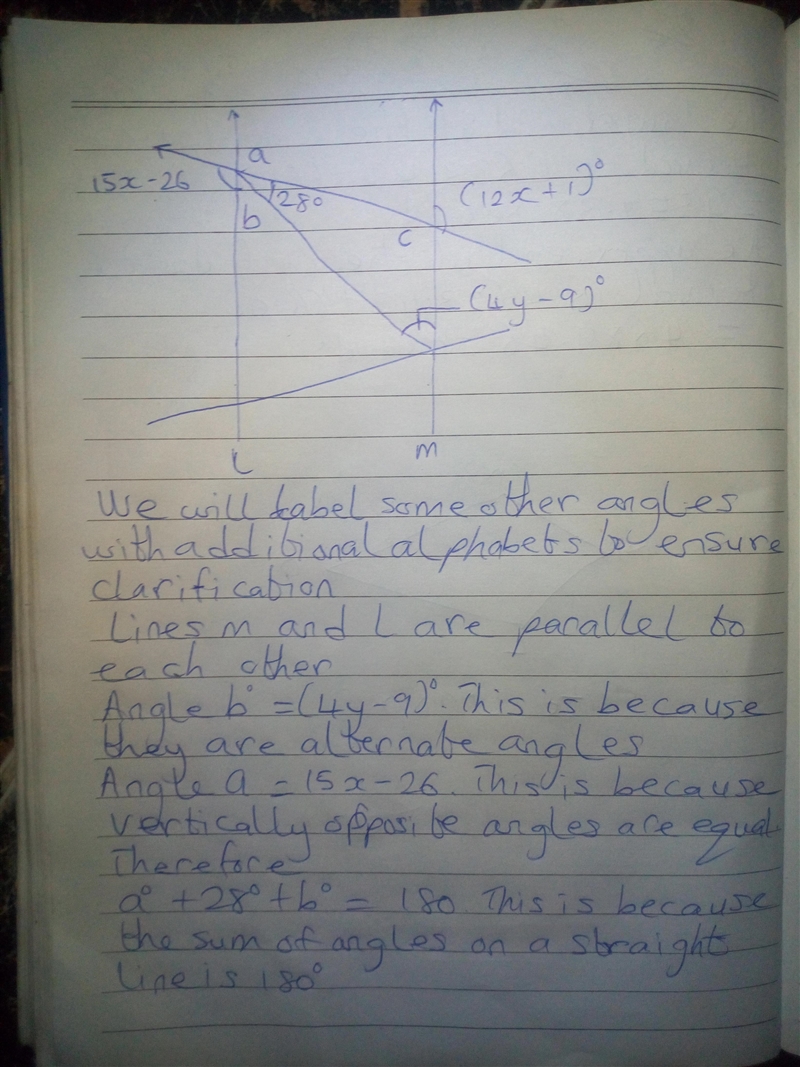 a
15x-26
28°
(12x+1)°
b
c
(4y-9)°
L
M
We will label some other angles
with additional alphabets to ensure
clarification
Lines m and L are parallel to
each other
Angle b° = (4y-9)°. This is because
they are alternate angles
Angle a = 15x-26. This is because
vertically opposite angles are equal.
Therefore
a° + 28° + b° = 180. This is because
the sum of angles on a straight
line is 180°